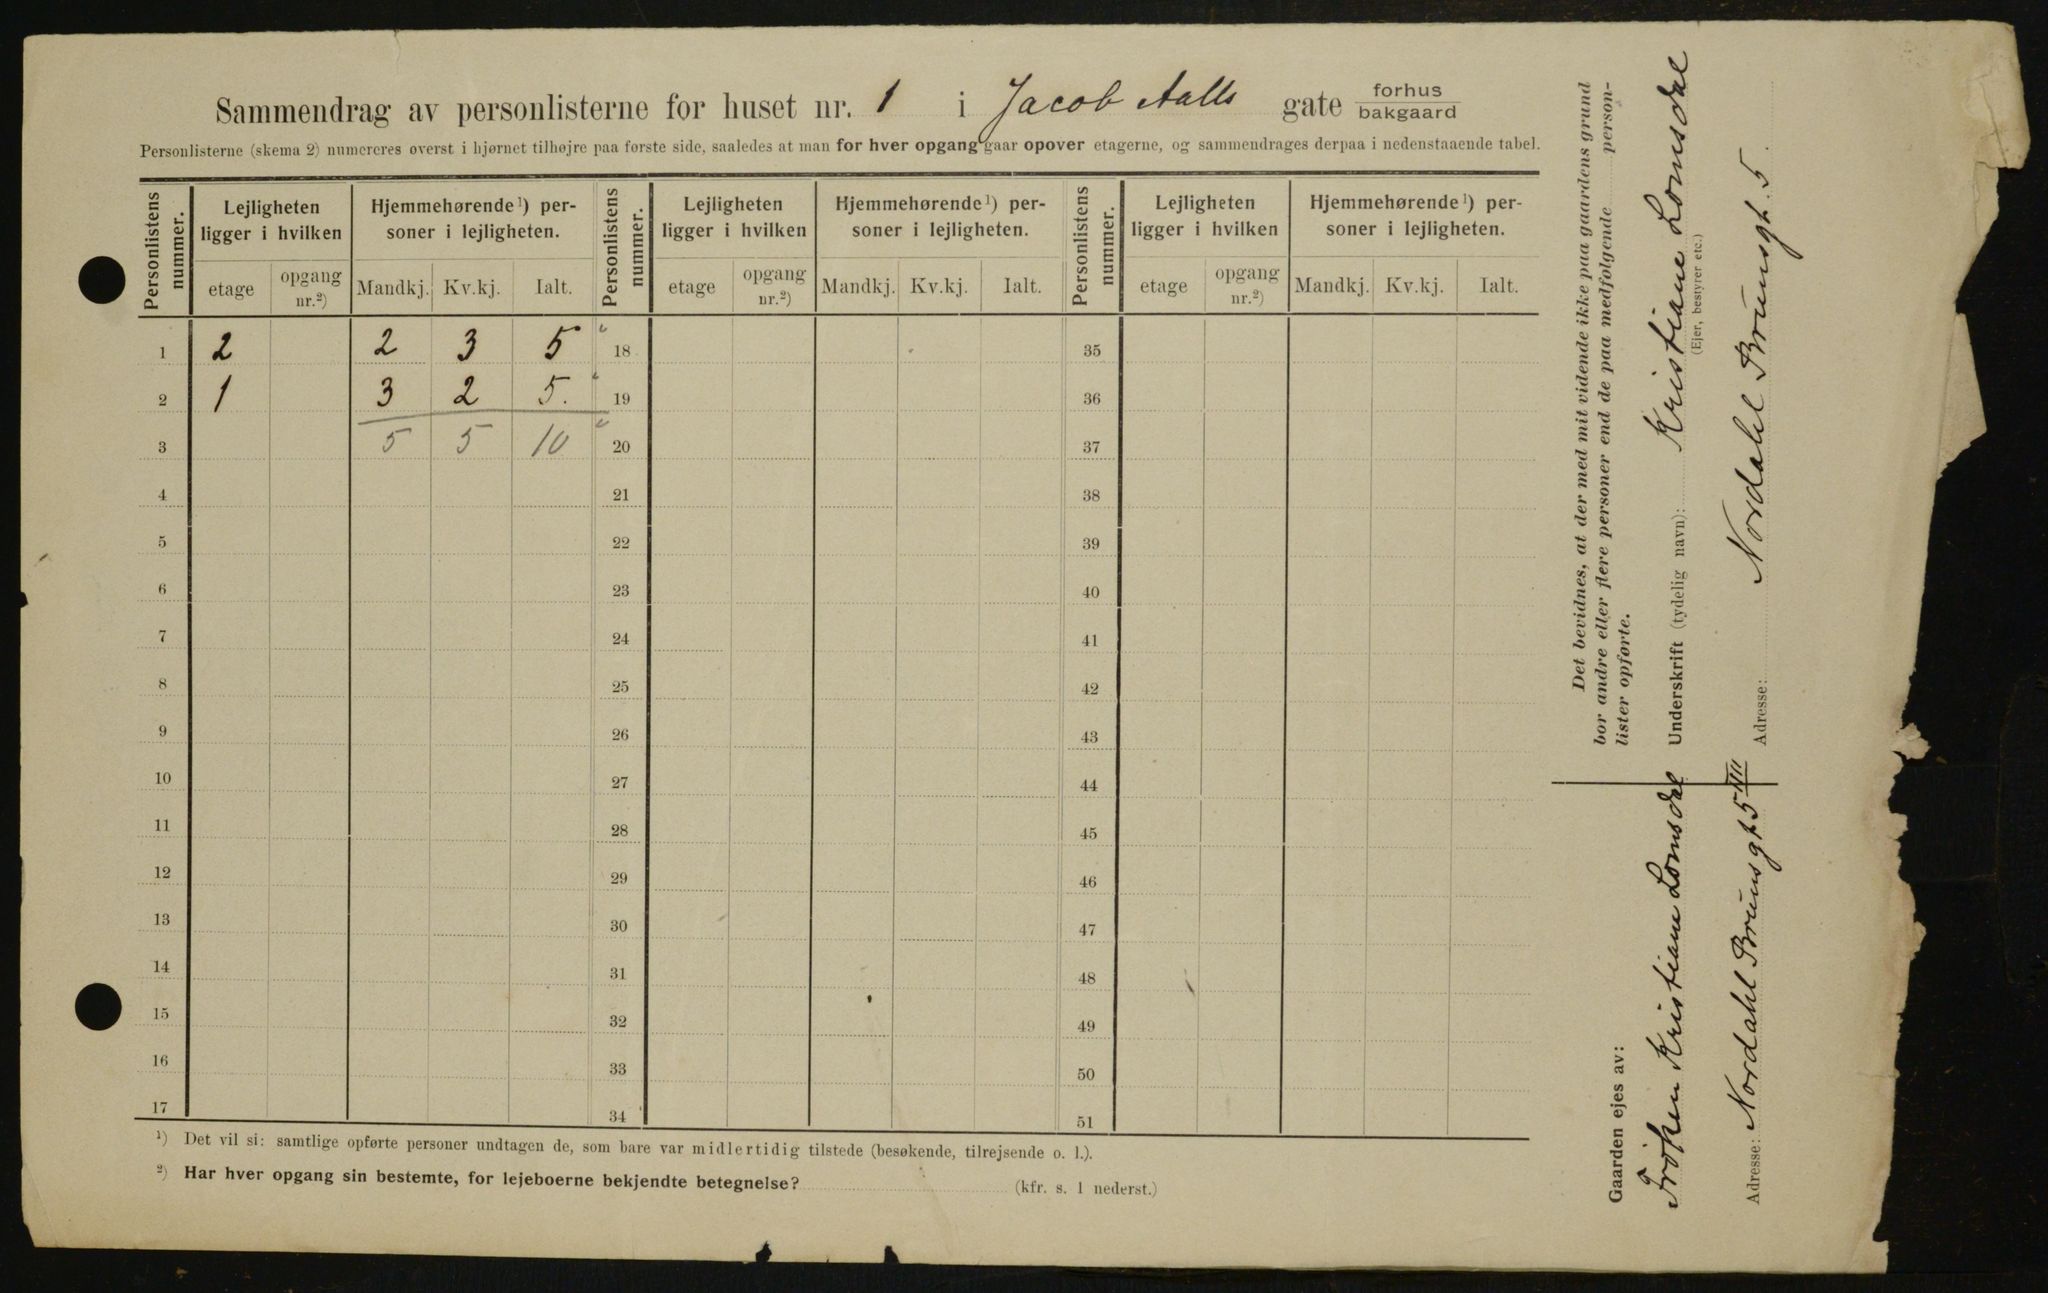 Sammendrag av personlisterne for huset nr. 1 i Jacob Aalls gate forhus / bakgaard
Personlisterne (skema 2) numereres øverst i hjørnet tilhøjre paa første side, saaledes at man for hver opgang gaar opover etagerne, og sammendrages derpaa i nedenstaaende tabel.
Personlistens nummer. Lejligheten ligger i hvilken Hjemmehørende¹) personer i lejligheten. Personlistens nummer. Lejligheten ligger i hvilken Hjemmehørende¹) personer i lejligheten. Personlistens nummer. Lejligheten ligger i hvilken Hjemmehørende¹) personer i lejligheten.
etage opgang nr.²) Mandkj. Kv.kj. Ialt. etage opgang nr.²) Mandkj. Kv.kj. Ialt. etage opgang nr.²) Mandkj. Kv.kj. Ialt.
1 2 2 3 5 18 35
2 1 3 2 5. 19 36
3 5 5 10 20 37
4 21 38
5 22 39
6 23 40
7 24 41
8 25 42
9 26 43
10 27 44
11 28 45
12 29 46
13 30 47
14 31 48
15 32 49
16 33 50
17 34 51
¹) Det vil si: samtlige opførte personer undtagen de, som bare var midlertidig tilstede (besøkende, tilrejsende o. l.).
²) Har hver opgang sin bestemte, for lejeboerne bekjendte betegnelse? (kfr. s. 1 nederst.)
Det bevidnes, at der med mit vidende ikke paa gaardens grund
bor andre eller flere personer end de paa medfølgende person-
lister opførte.
Underskrift (tydelig navn): Kristiane Lomsdal
(Ejer, bestyrer etc.)
Adresse: Nordahl Brunsgt. 5.
Gaarden ejes av:
Frøken Kristiane Lomsdal
Adresse: Nordahl Brunsgt 5 III